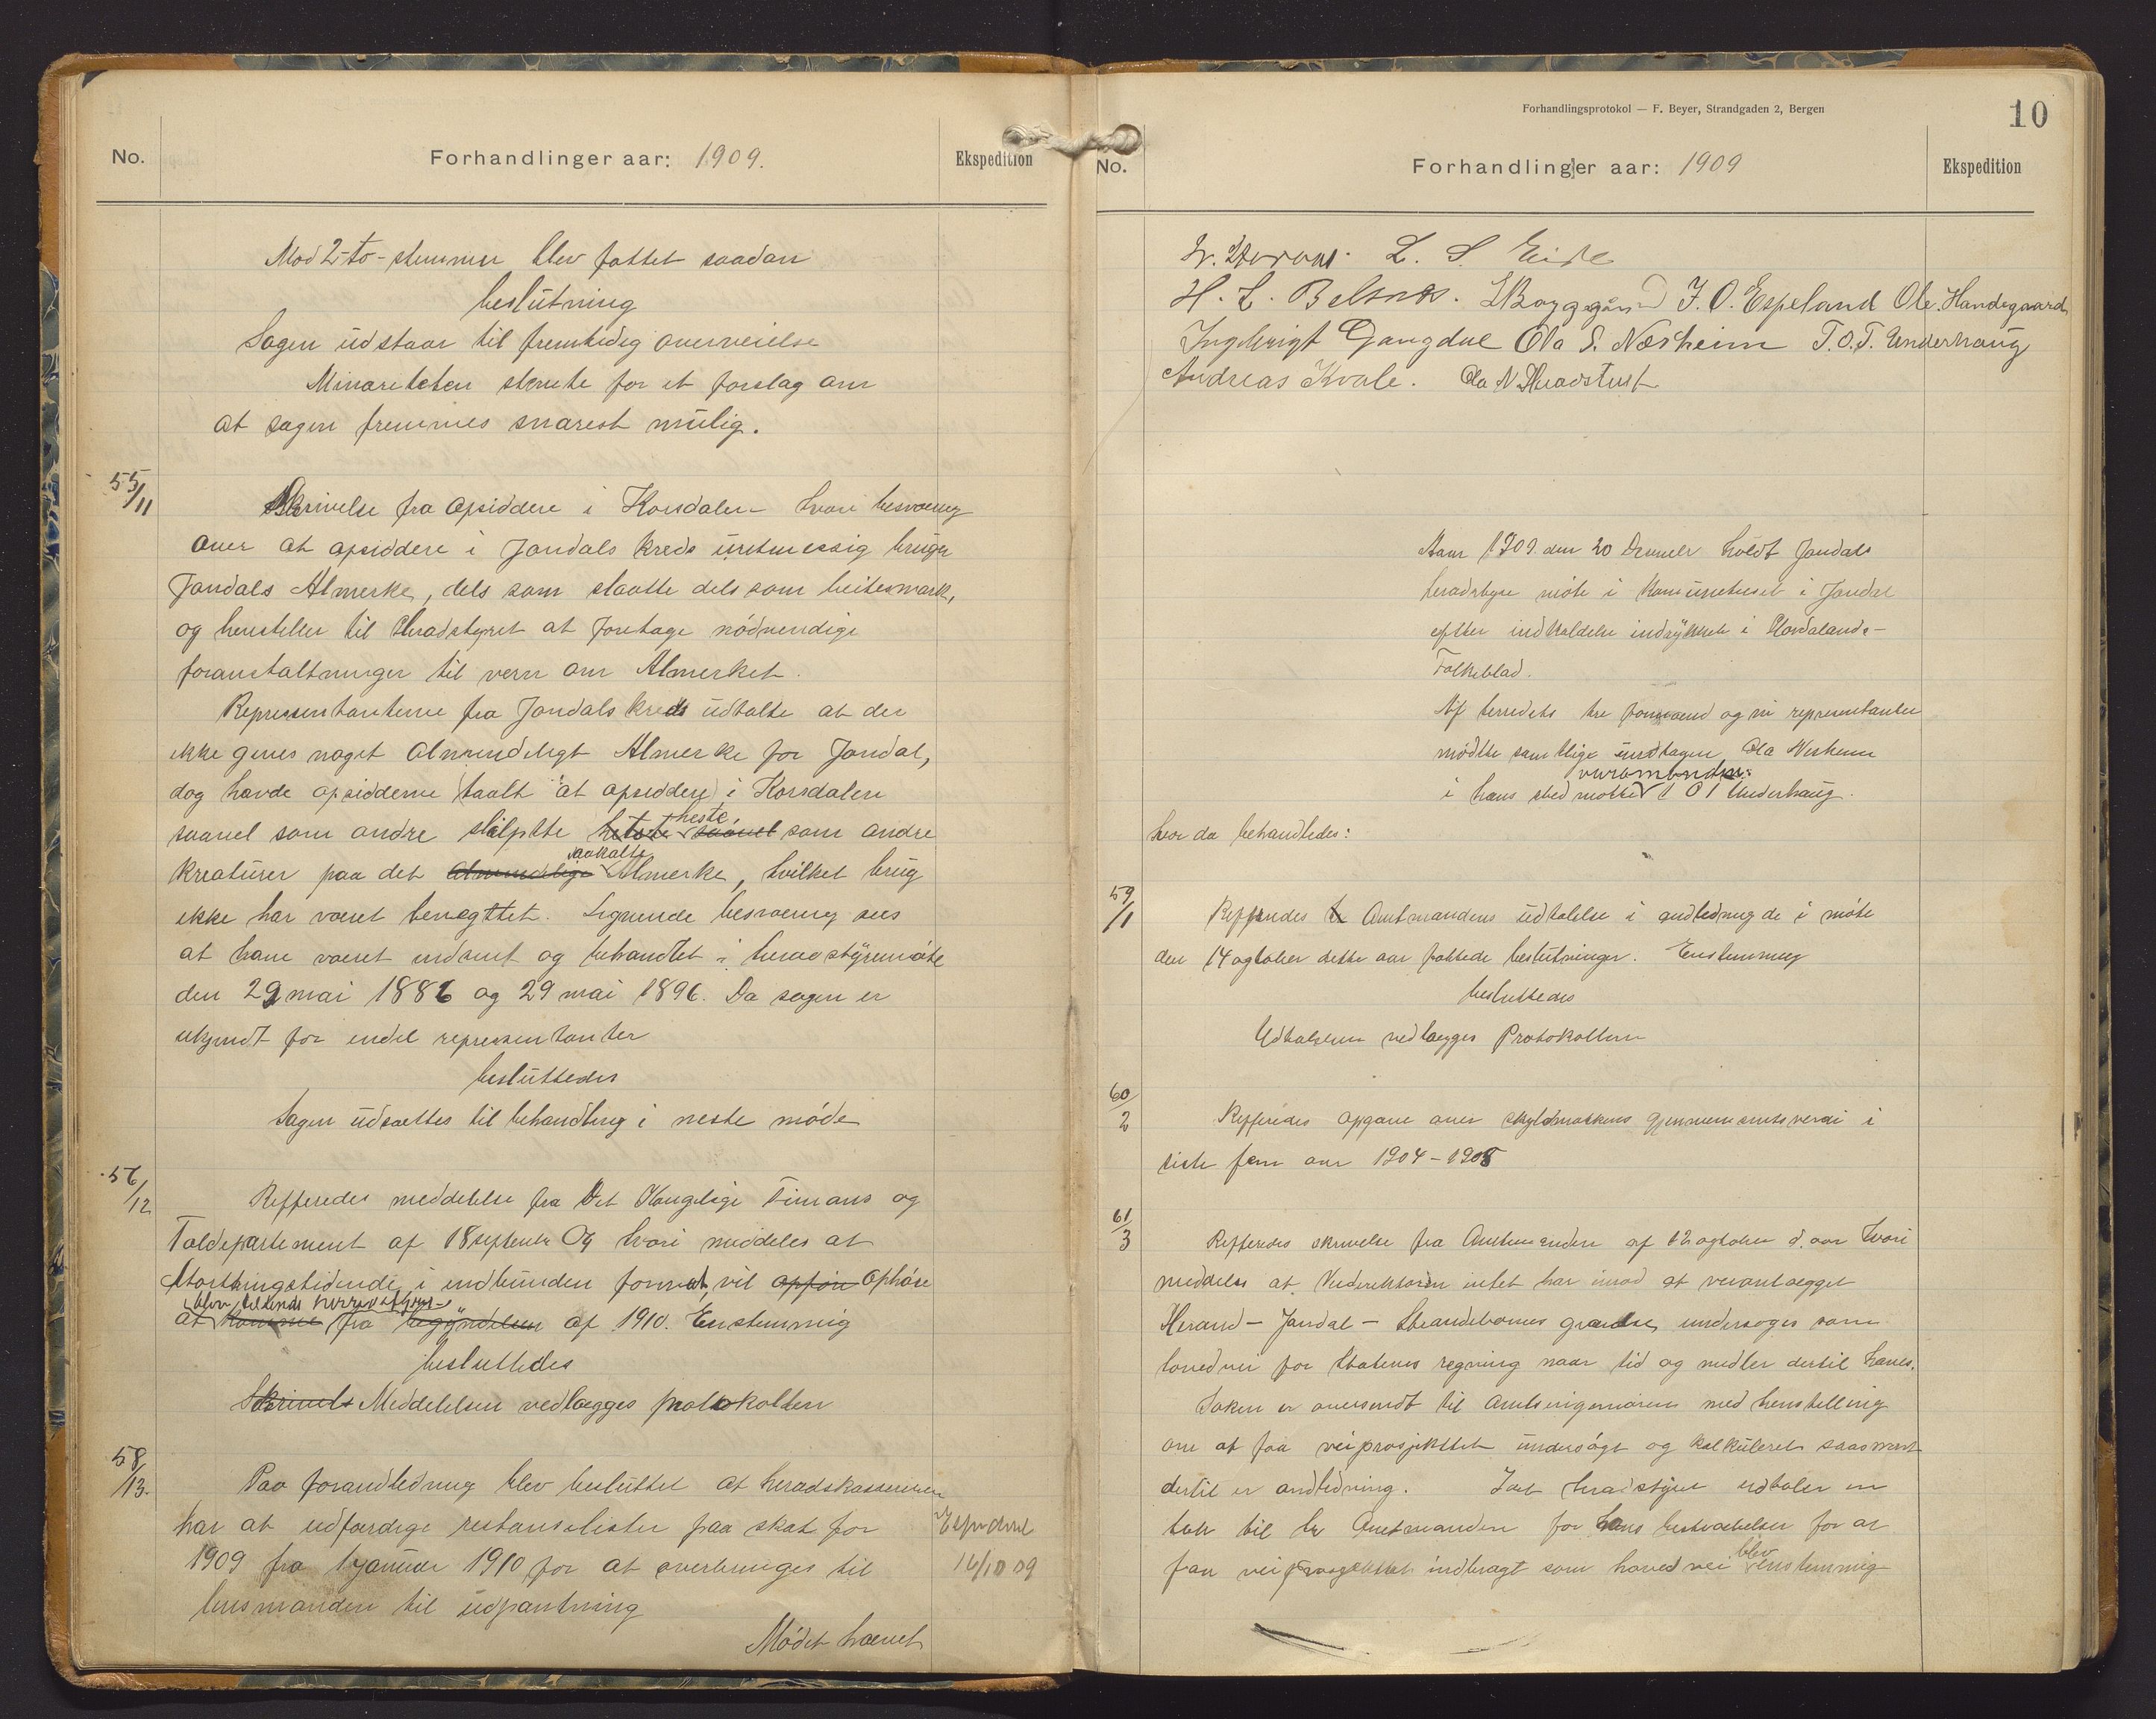 No.
Forhandlinger aar: 1909.
Ekspedition
Mod 2-to-stemmer blev fattet saadan
beslutning
Sagen udstaar til fremtidig overveielse
Minoriteten stemte for et forslag om
at sagen fremmes snarest mulig.
55/11
Skrivelse fra opsiddere i Korsdalen hvori besværing
over at opsiddere i Jondals kreds uretmessig bruger
Jondals Almerke, dels som slaatte dels som beitesmark,
og henstiller til Heradstyret at foretage nödvendige
foranstaltninger til vern om Almerket.
Representanterne fra Jondals kreds udtalte at der
ikke gives noget Almindeligt Almerke for Jondal,
dog havde opsidderne taalt at opsiddere i Korsdalen
saavel som andre slüpte heste som andre
kreaturer paa det saakalte Almerke, hvilket brug
ikke har været benægttet. Lignende besværing sees
at have været indsent og behandlet i heradstyremöte
den 29 mai 1886 og 29 mai 1896. Da sagen er
ukjendt for endel representanter
besluttedes
Sagen udsættes til behandling i neste möde
56/12
Refferedes meddelelse fra Det Kongelige Finans og
Toldepartement af 18 september 09 hvori meddeles at
Storthingstidende i indbunden format, vil ophöre
at blive tilsendt herredstyret fra af 1910. Enstemmig
besluttedes
Meddelelsen vedlægges protokollen
58/13.
Paa foranledning blev besluttet at heradskassereren
har at udfærdige restanselister paa skat for
1909 fra 1 januar 1910 for at overbringes til
lensmanden til udpantning
Espederet
16/10 09
Mödet hævet
Forhandlingsprotokol — F. Beyer, Strandgaden 2, Bergen
10
No.
Forhandlinger aar: 1909
Ekspedition
L. S. Eide
H. L. Belsnes. J. O. Espeland Ole Handegaard
Ingebrigt Gangdal Ola S. Næsheim T.O.T. Underhaug
Andreas Kvale. Ola N.
Aar 1909 den 20 Desember holdt Jondals
heradstyre möte i Komunehuset i Jondal
efter indkaldelse indrykket i Hordalands-
Folkeblad.
Af herredets tre formænd og ni representanter
mödte samtlige undtagen Ola Nesheim
i hans sted mötte varamanden T O T Underhaug.
hvor da behandledes:
59/1
Refferedes Amtmandens udtalelse i andledning de i möte
den 14 oglober dette aar fattede beslutninger. Enstemmig
besluttedes
Udtalelsen vedlægges Protokollen
60/2
Refferedes opgave over skyldmarkens gjennemsnitsverdi i
siste fem aar 1904-1908
61/3
Refferedes skrivelse fra Amtmanden af 12 oglober d. aar hvori
meddeles at Veidirektören intet har imod at veianlægget
Herand - Jondal - Strandebarms grændse undersøges som
hovedvei for Statens regning naar tid og midler dertil haves.
Saken er oversendt til Amtsingeniören med henstelling
om at faa veiprosjektet undersögt og kalkuleret saasnart
dertil er andledning. Jondal heradstyre udtaler en
tak til hr Amtmanden for hans bestræbelser for at
faa veiprosjektet indbragt som hovedvei blev enstemmig